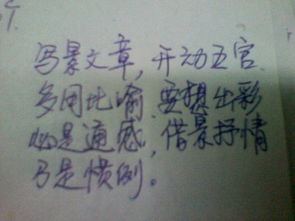 写景文章，开动五官
多用比喻，要想出彩
必是通感，借景抒情
乃是惯例。